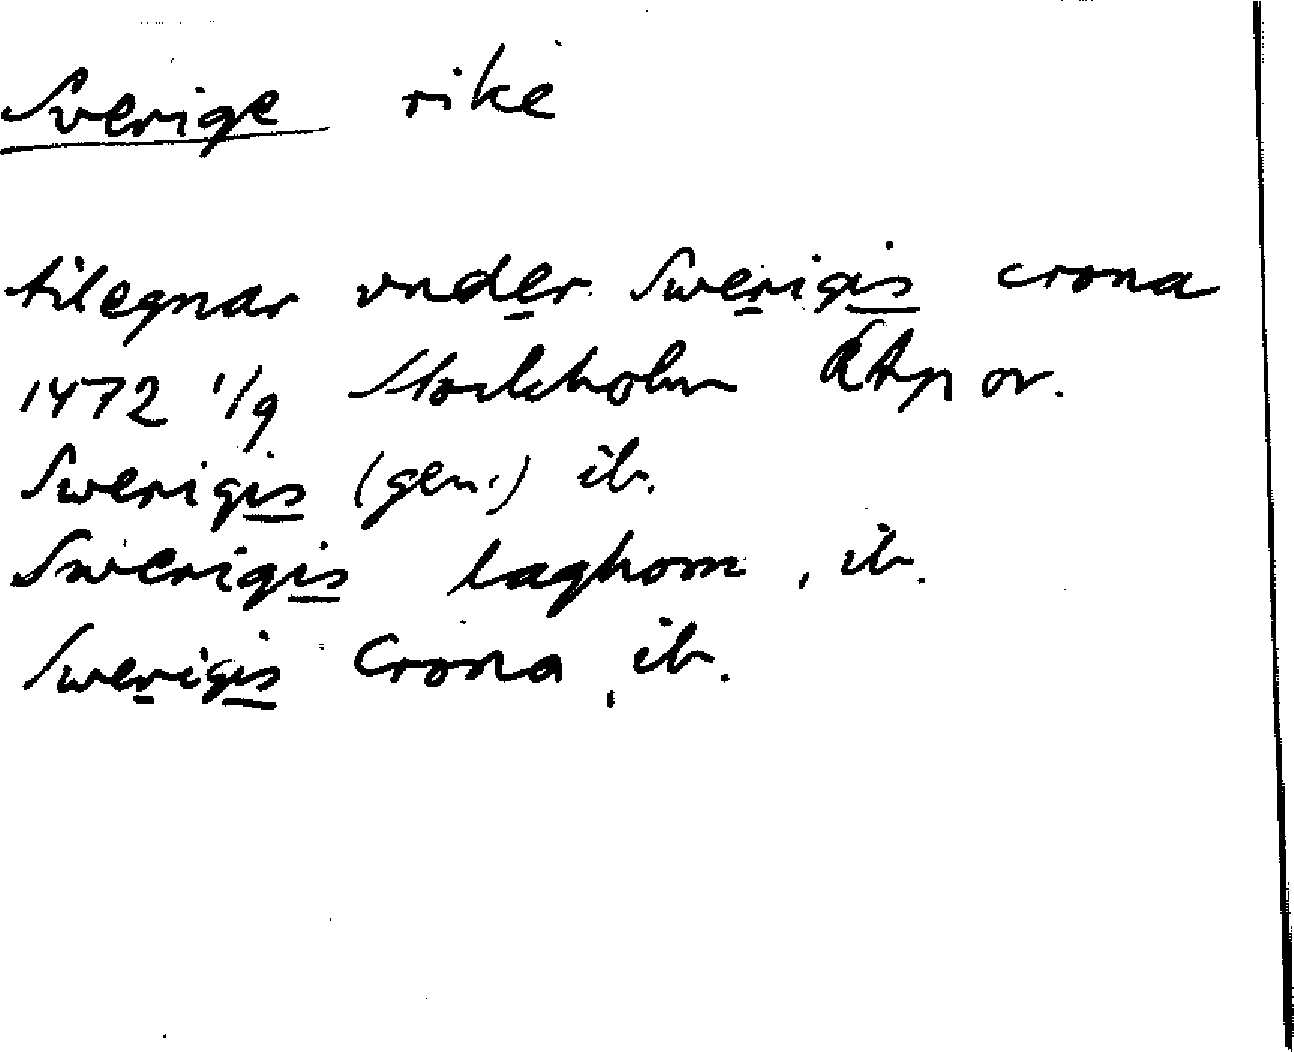 Sverige rike
tilegnar vnder Swerigis crona
1472 1/9 Stockholm RAp or.
Swerigis (gen.) ib.
Swerigis laghom, ib.
Swerigis Crona, ib.